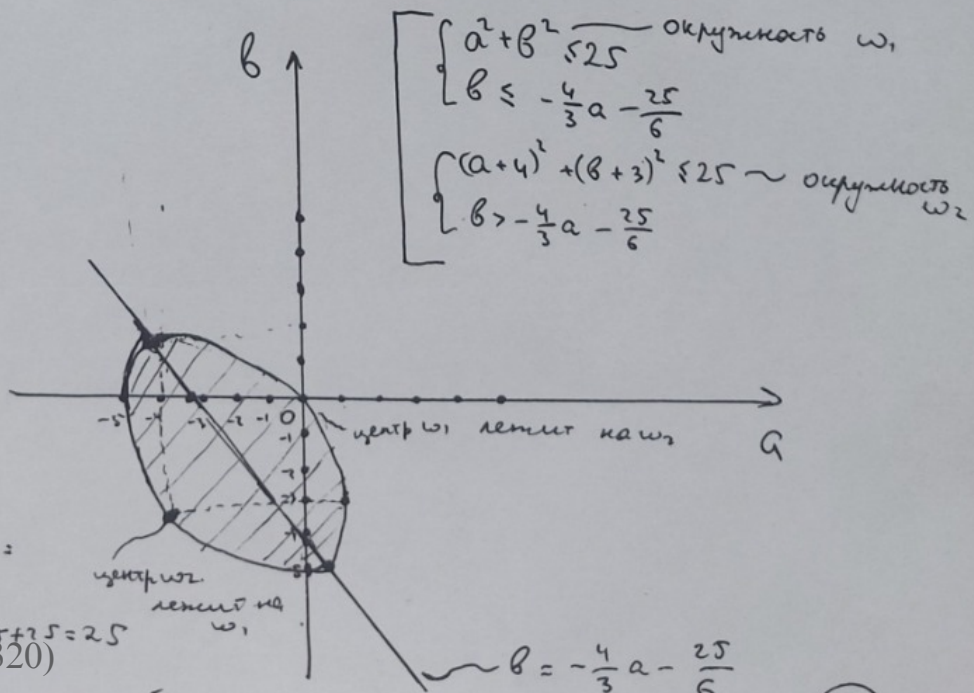 a² + b² ≤ 25 — окружность ω₁
b ≤ -4/3 a - 25/6
(a+4)² + (b+3)² ≤ 25 ~ окружность ω₂
b > -4/3 a - 25/6
b
-5 -4 -3 -2 -1 0
a
центр ω₁ лежит на ω₂
-1
-2
-3
-4
5
=
центр ω₂
лежит на ω₁
+25=25
320)
b = -4/3 a - 25/6